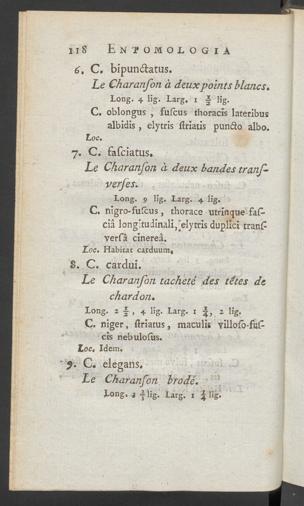 118 ENTOMOLOGIA
6. C. bipunctatus.
Le Charanſon à deux points blancs.
Long. 4 lig. Larg. 1 ½ lig.
C. oblongus, fuſcus thoracis lateribus
albidis, elytris ſtriatis puncto albo.
Loc.
7. C. faſciatus.
Le Charanſon à deux bandes tranſ-
verſes.
Long. 9 lig. Larg. 4 lig.
C. nigro-fuſcus, thorace utrinque faſ-
ciâ longitudinali, elytris duplici tranſ-
verſâ cinereâ.
Loc. Habitat carduum.
8. C. cardui.
Le Charanſon tacheté des têtes de
chardon.
Long. 2 ½, 4 lig. Larg. 1 ¼, 2 lig.
C. niger, ſtriatus, maculis villoſo-fuſ-
cis nebuloſus.
Loc. Idem.
9. C. elegans.
Le Charanſon brodé.
Long. 2 lig. Larg. 1 ¼ lig.